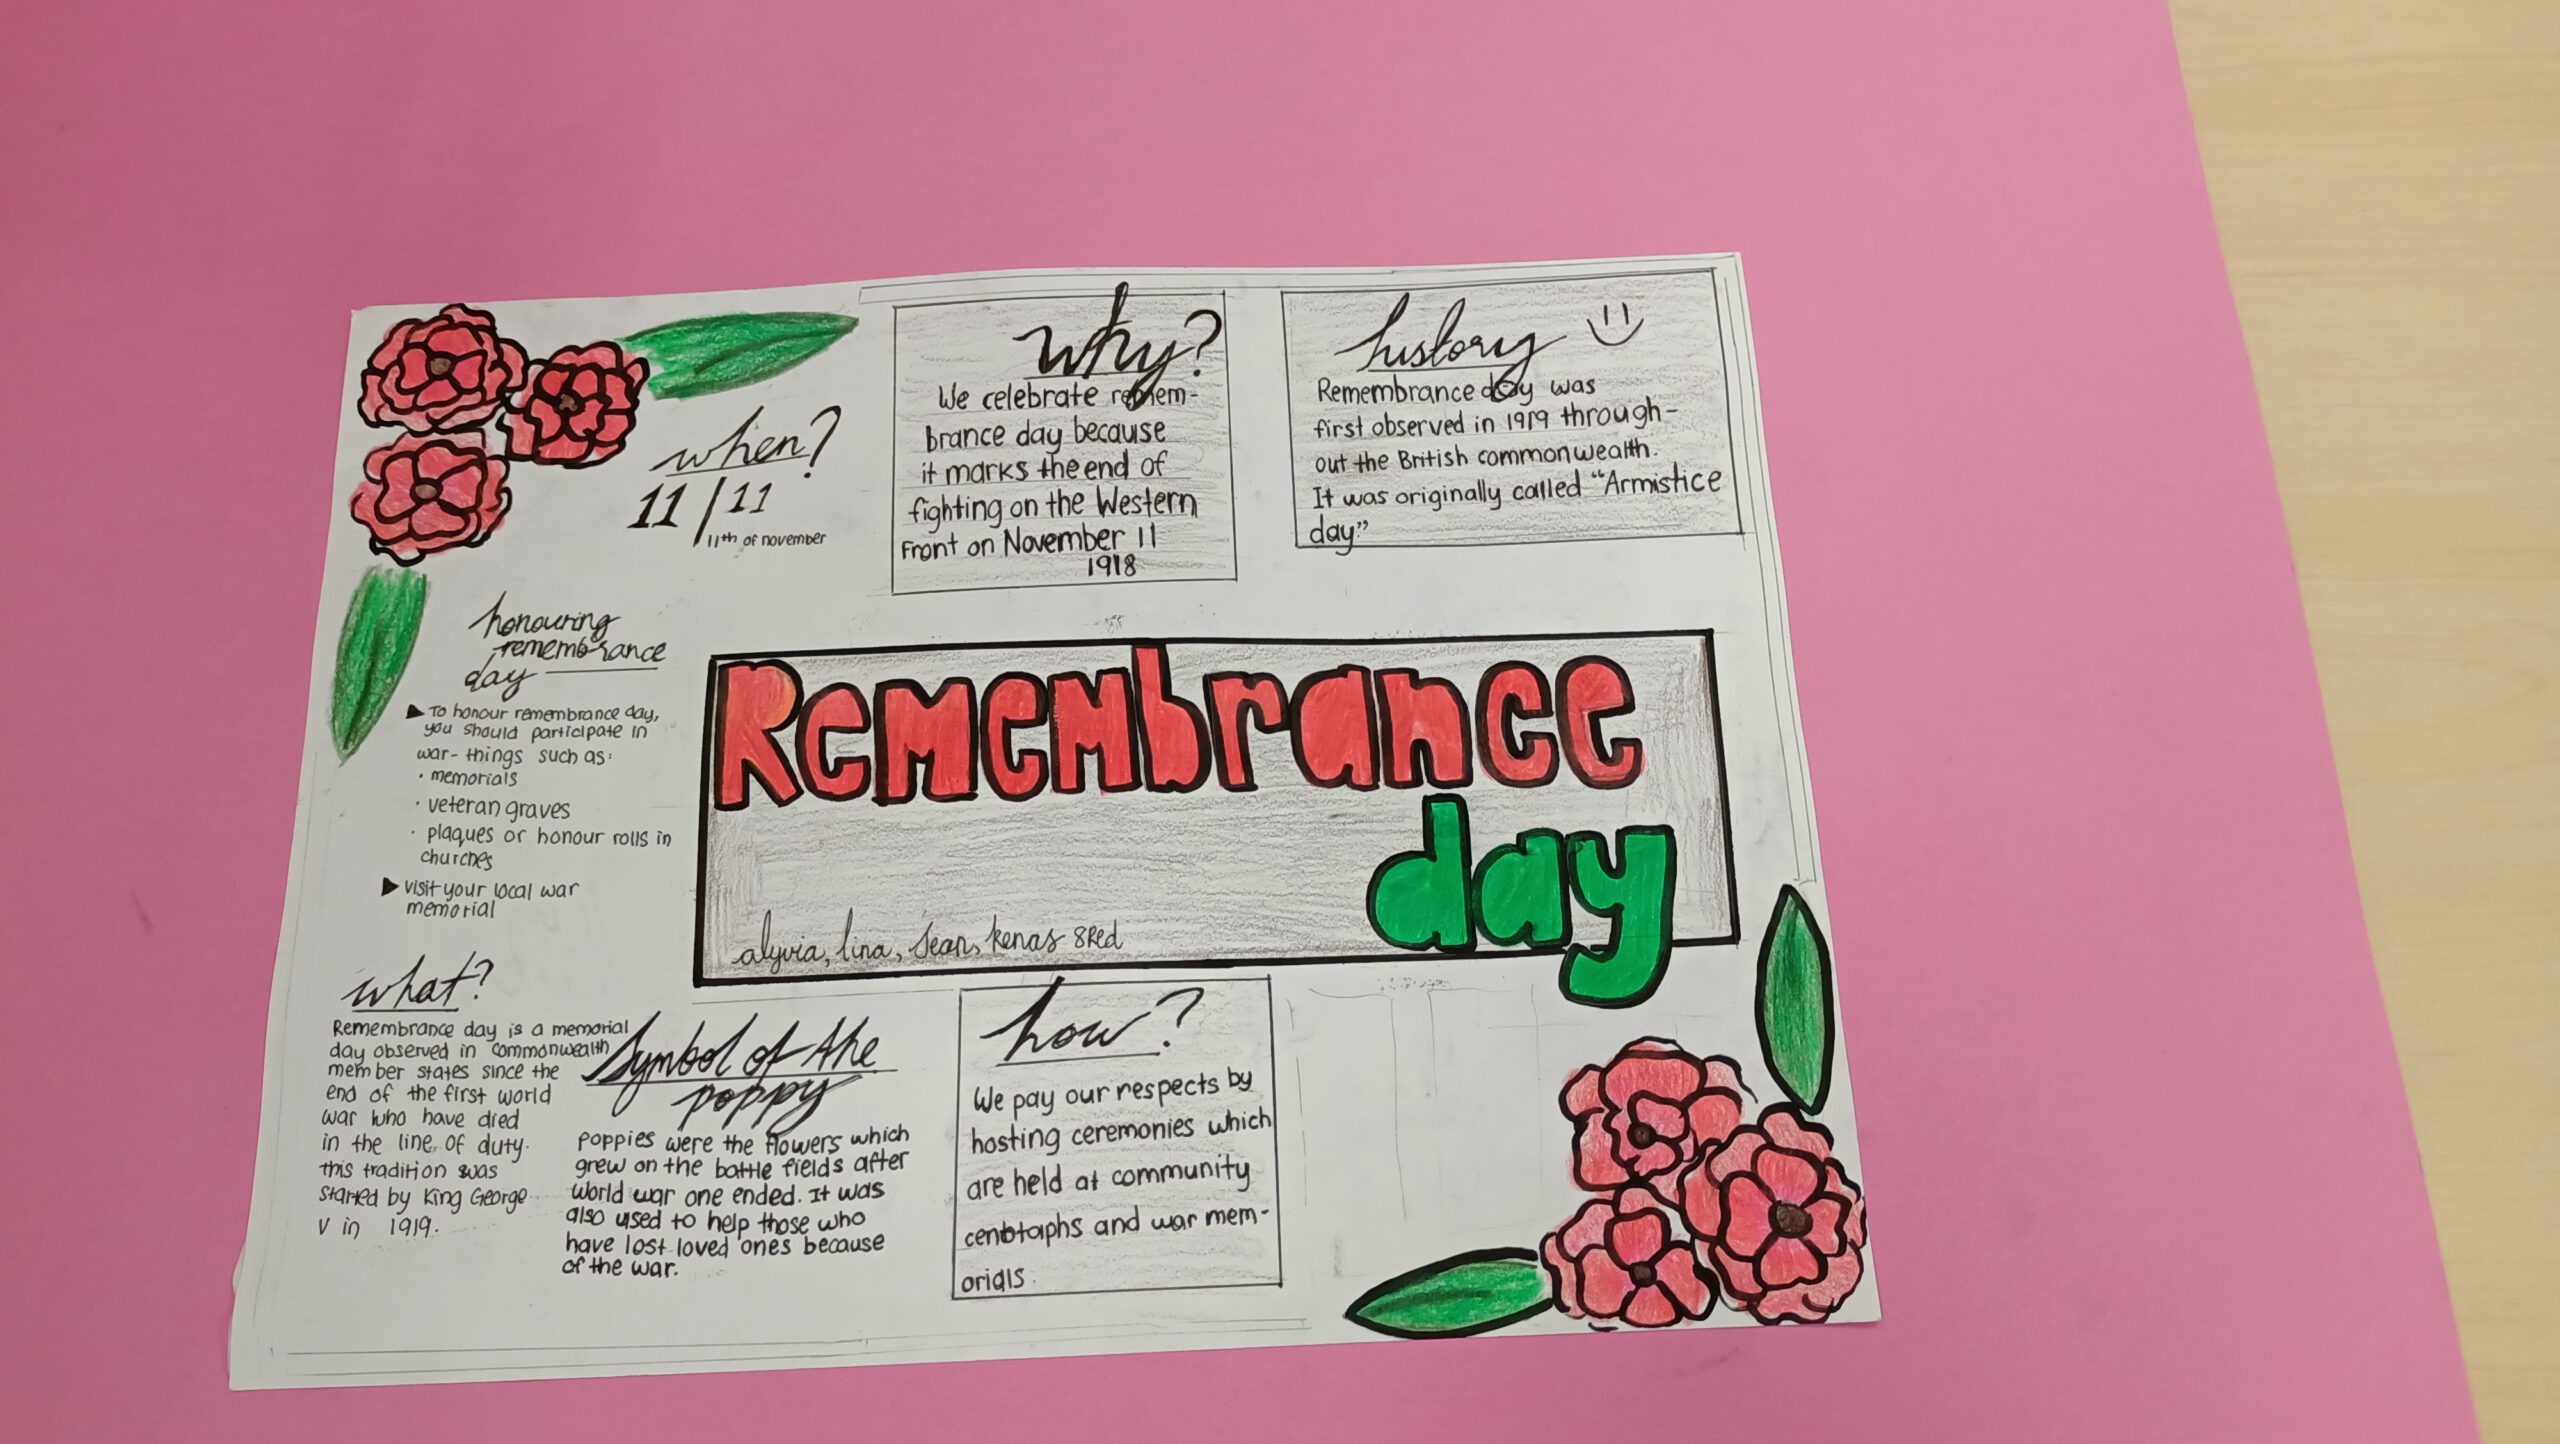 when?
11/11
11th of november
why?
We celebrate remem-
brance day because
it marks the end of
fighting on the Western
Front on November 11
1918
history
Remembrance day was
first observed in 1919 through-
out the British commonwealth.
It was originally called "Armistice
day"
honouring
remembrance
day
To honour remembrance day,
you should participate in
war-things such as:
· memorials
· veteran graves
· plaques or honour rolls in
churches
visit your local war
memorial
Remembrance
day
alyvia, lina, sean, kenas 8Red
what?
Remembrance day is a memorial
day observed in commonwealth
member states since the
end of the first world
war who have died
in the line of duty.
this tradition was
started by King George
V in 1919.
Symbol of the
poppy
poppies were the flowers which
grew on the battle fields after
world war one ended. It was
also used to help those who
have lost loved ones because
of the war.
how?
We pay our respects by
hosting ceremonies which
are held at community
cenotaphs and war mem-
orials.